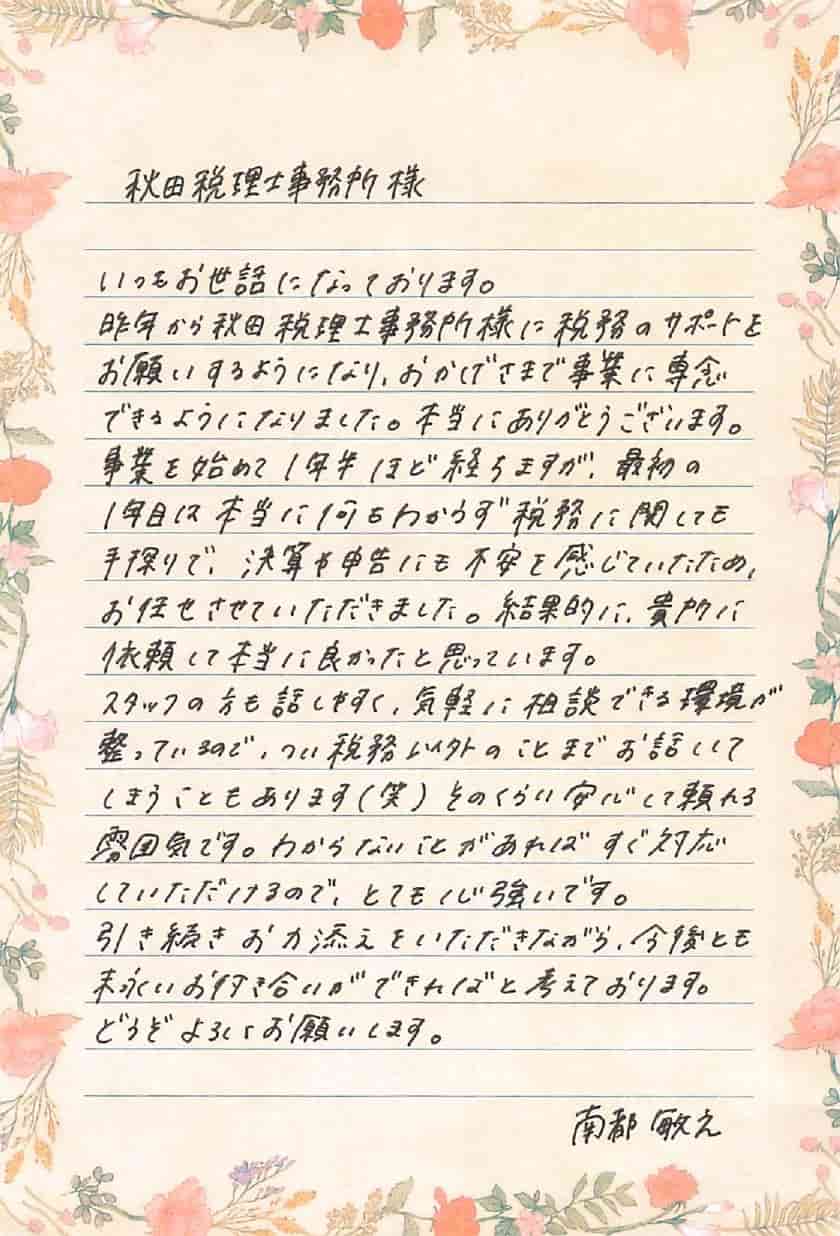 秋田税理士事務所様
いつもお世話になっております。
昨年から秋田税理士事務所様に税務のサポートを
お願いするようになり、おかげさまで事業に専念
できるようになりました。本当にありがとうございます。
事業を始めて1年半ほど経ちますが、最初の
1年目は本当に何もわからず税務に関しても
手探りで、決算や申告にも不安を感じていたため、
お任せさせていただきました。結果的に、貴所に
依頼して本当に良かったと思っています。
スタッフの方も話しやすく、気軽に相談できる環境が
整っているので、つい税務以外のことまでお話して
しまうこともあります(笑)そのくらい安心して頼れる
雰囲気です。わからないことがあればすぐ対応
していただけるので、とても心強いです。
引き続きお力添えをいただきながら、今後とも
末永いお付き合いができればと考えております。
どうぞよろしくお願いします。
南都 敏え